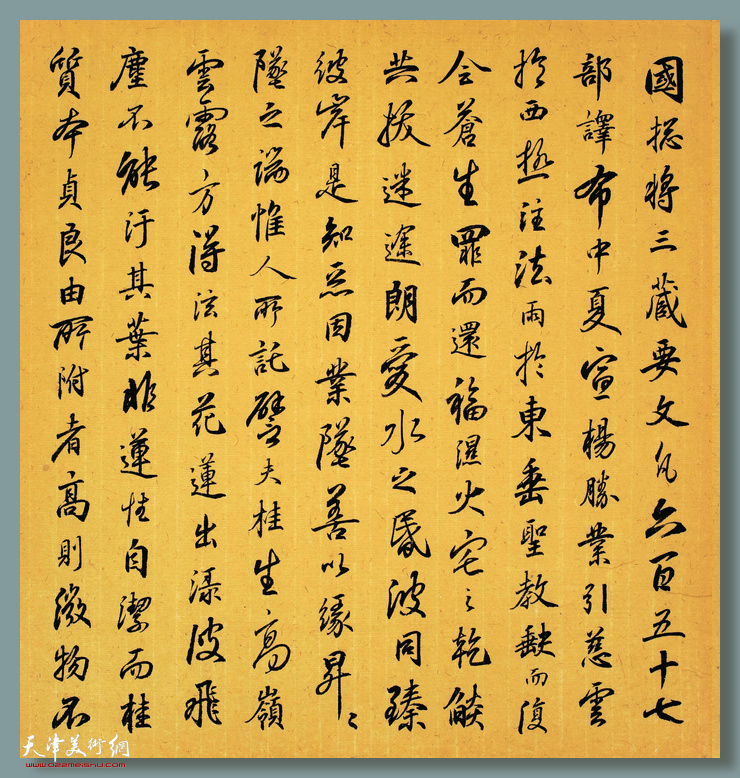 國揔將三藏要文凡六百五十七
部譯布中夏宣楊勝業引慈雲
於西極注法雨於東垂聖教缺而復
全蒼生罪而還福濕火宅之乾𦦨
共拔迷途朗愛水之昏波同臻
彼岸是知惡因業墜善以緣昇〻
墜之端惟人所託譬夫桂生高嶺
雲露方得泫其花蓮出渌波飛
塵不能汙其葉非蓮性自潔而桂
質本貞良由所附者高則微物不
天津美術網
www.022meishu.com